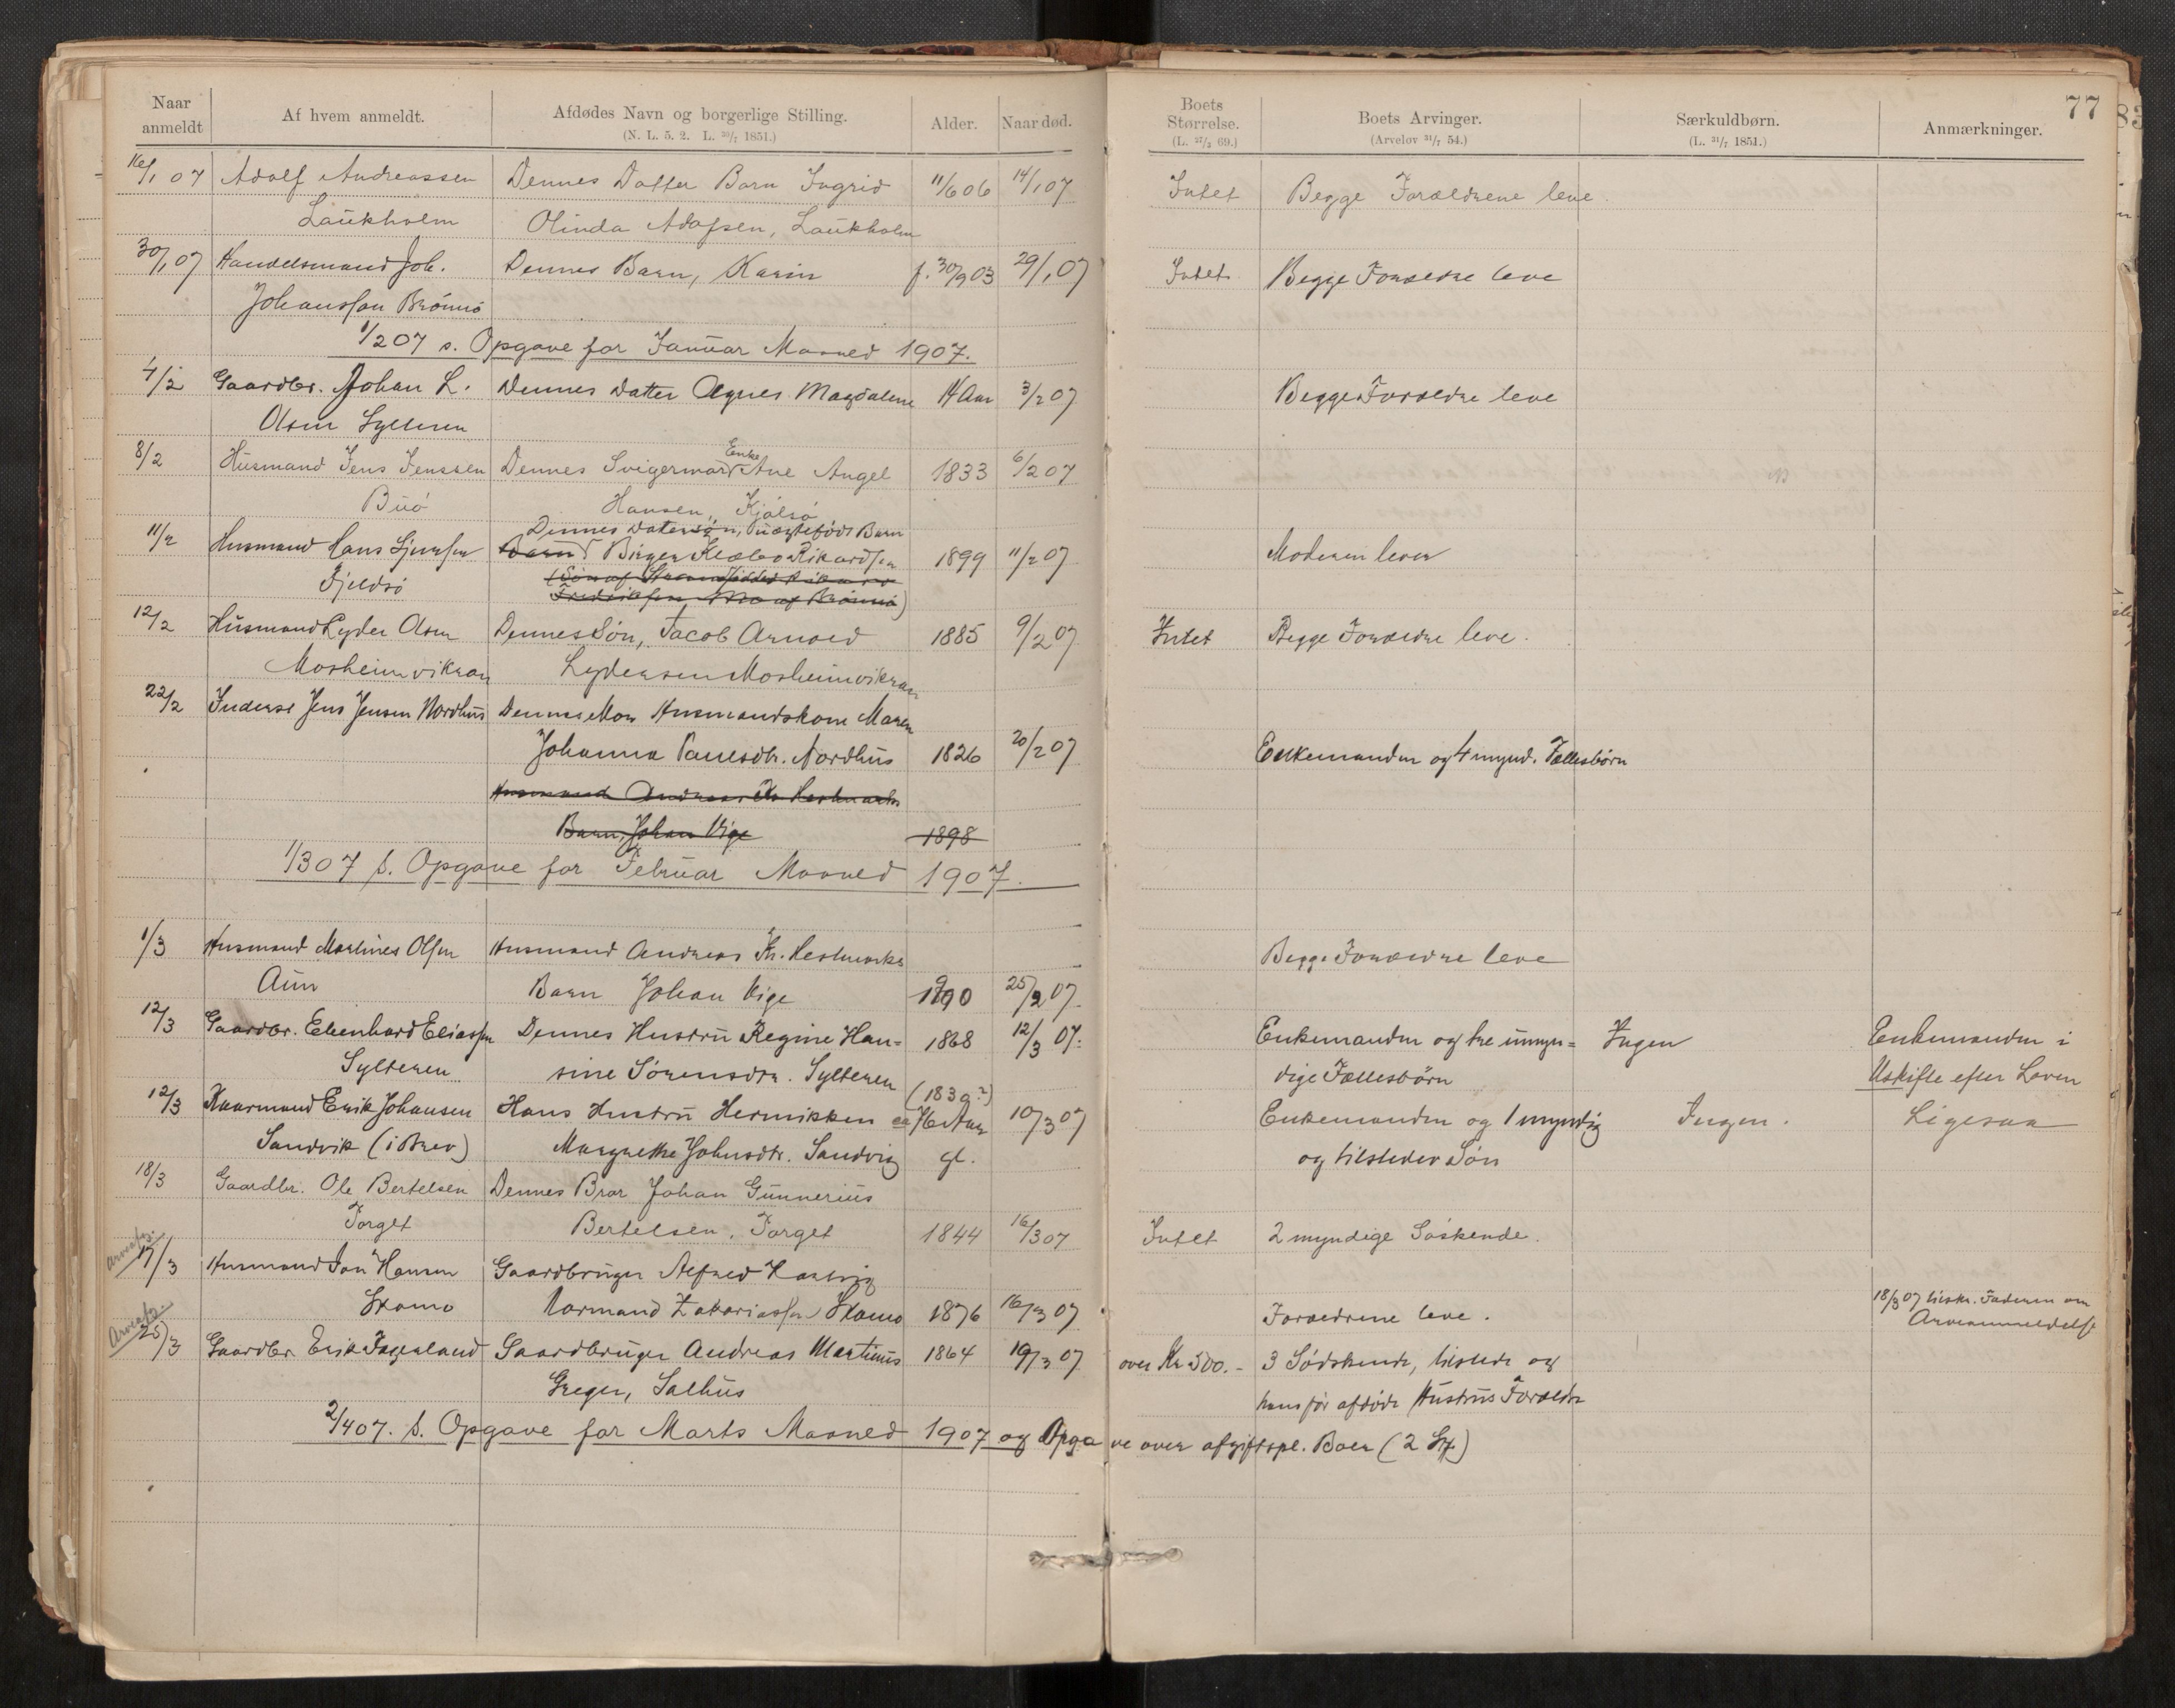 77
Naar anmeldt
Af hvem anmeldt.
Afdødes Navn og borgerlige Stilling.
(N. L. 5. 2. L. 30/7 1851.)
Alder.
Naar død.
Boets Størrelse.
(L. 27/3 69.)
Boets Arvinger.
(Arvelov 31/7 54.)
Særkuldbørn.
(L. 31/7 1851.)
Anmærkninger.
16/1 07 Adolf Andreassen Dennes Datter Barn Ingrid 11/6 06 14/1 07 Intet Begge Forældrene leve
Laukholm Olinda Adolfsen, Laukholm
30/1 07 Handelsmand Joh. Dennes Barn, Karin f. 30/9 03 29/1 07 Intet Begge Forældre leve
Johanssen Brönnö
1/2 07 s. Opgave for Januar Maaned 1907.
4/2 Gaardbr. Johan L. Dennes Datter Agnes Magdalene 14 Aar 3/2 07 Begge Forældre leve
Olsen Sylteren
8/2 Husmand Jens Jenssen Dennes Svigermor Enke Ane Angel 1833 6/2 07
Buö Hansen, Kjälsö
Dennes Datersön, uægtefödt Barn
11/2 Husmand Hans Barn Birger Klæbo Rikardsen 1899 11/2 07 Moderen lever
Fjeldsö
12/2 Husmand Lyder Olsen Dennes Sön, Jacob Arnold 1885 9/2 07 Intet Begge Forældre leve.
Mosheimvikran Lydersen Mosheimvikran
22/2 Inderst Jens Jensen Nordhus Dennes Mor Husmandskone Maren
Johanna Paulsdtr. Nordhus 1826 20/2 07 Enkemanden og 4 mynd. Fællesbörn
Husmand Andreas Kr. Hestmarks
Barn, Johan Vige 1898
1/3 07 s. Opgave for Februar Maaned 1907.
1/3 Husmand Martines Olsen Husmand Andreas Kr. Hestmarks Begge Forældre leve
Aun Barn Johan Vige 1900 25/2 07.
12/3 Gaardbr. Edenhard Eliassen Dennes Hustru Regine Han= 1868 12/3 07. Enkemanden og tre umyn= Ingen Enkemanden i
Sylteren sine Sörensdtr. Sylteren dige Fællesbörn Uskifte efter Loven
(1839?)
12/3 Kaarmand Erik Johansen Hans Hustru Hermikken ca 76 Aar 10/3 07 Enkemanden og 1 myndig Ingen. Ligesaa
Sandvik (i Brev) Margrethe Johnsdtr. Sandvig gl. og tilsteder Sön
18/3 Gaardbr. Ole Bertelsen Dennes Bror Johan Gunnerius
Torget Bertelsen, Torget 1844 16/3 07 Intet 2 myndige Söskende.
17/3 Husmand Jon Hansen Gaardbruger Alfred Hartvig
Skomo Normand Zakariassen Skomo 1876 16/3 07 Forældrene leve. 18/3 07 tilskr. Faderen om
Arveanmeldelse
25/3 Gaardbr Erik Fagerland Gaardbruger Andreas Martinus 1864 19/3 07 over Kr 500.- 3 Södskende, tilstede og
Greger, Salhus hans för afdöde Hustrus Forældre
2/4 07. s. Opgave for Marts Maaned 1907 og Opgave over afgiftspl. Boer (2 St)